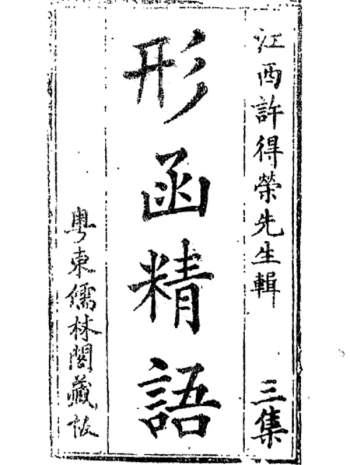 江西許得榮先生輯　三集
形函精語
粵東儒林閣藏板